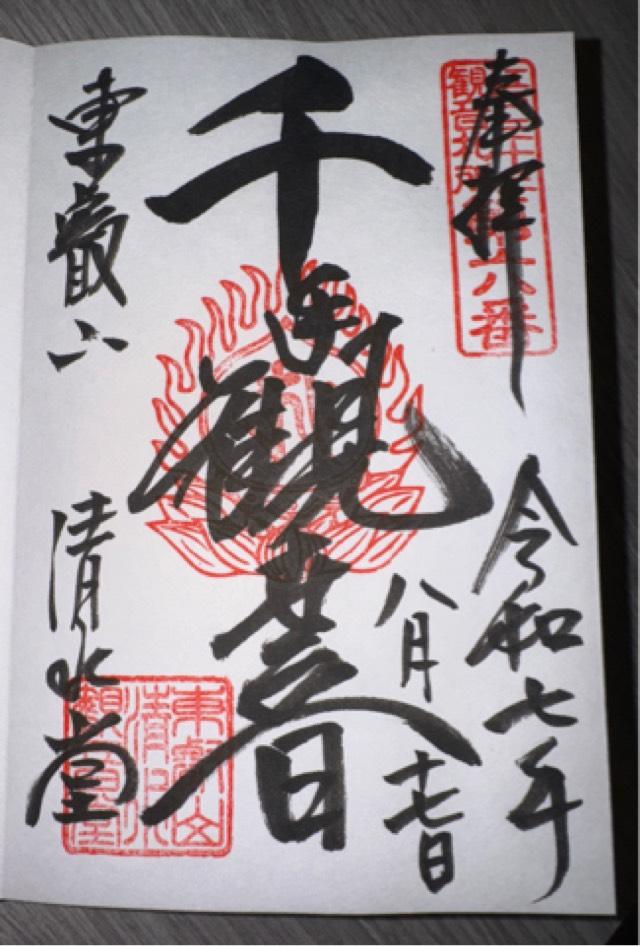 奉拝
令和七年
八月十七日
千手観音
東叡山
清水堂
観音札所
東叡山
清水
観音堂